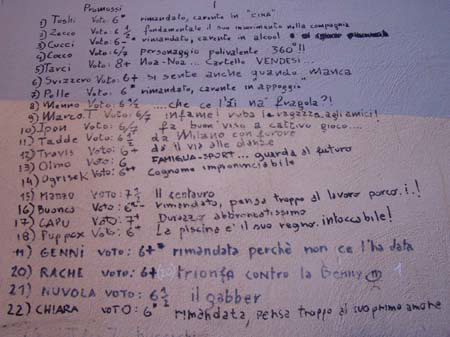 Promossi
1) Toshi Voto: 6* rimandato, carente in "CIMA"
2) Zecco Voto: 6 ½ fondamentale il suo inserimento nella compagnia
3) Cucci Voto: 6-* rimandato, carente in alcool
4) Cocco Voto: 6/7 personaggio polivalente 360°!!
5) Tarci Voto: 8+ Noa-Noa... Cartello VENDESI...
6) Svizzero Voto: 6+ si sente anche quando manca
7) Pelle Voto: 6* rimandato, carente in "appoggio"
8) Menno Voto: 6 ½ ....che ce l'ài na' fragola?!
9) Marco.T Voto: 6/7 infame! ruba la ragazza agli amici!
10) Ipon Voto: 6/7 fa buon viso a cattivo gioco....
11) Tadde Voto: 6 ½ da Milano con furore
12) Travis Voto: 6+ dà il via alle danze
13) Olmo Voto: 6 FAMIGLIA-SPORT... guarda al futuro
14) Ogrisek Voto: 6++ Cognome impronunciabile
15) Manzo Voto: 7 ½ Il centauro
16) Buonco Voto: 6-* rimandato, pensa troppo al lavoro porco.i.!
17) CAPU Voto: 7+ Durazzo abbronzatissimo
18) Puppax Voto: 6+ La piscina e' il suo regno. intoccabile!
19) GENNI VOTO: 6+* rimandata perchè non ce l'ha data
20) RACHE VOTO: 6+ trionfa contro la Genny
21) NUVOLA VOTO: 6 ½ il gabber
22) CHIARA VOTO: 6* rimandata, pensa troppo al suo primo amore